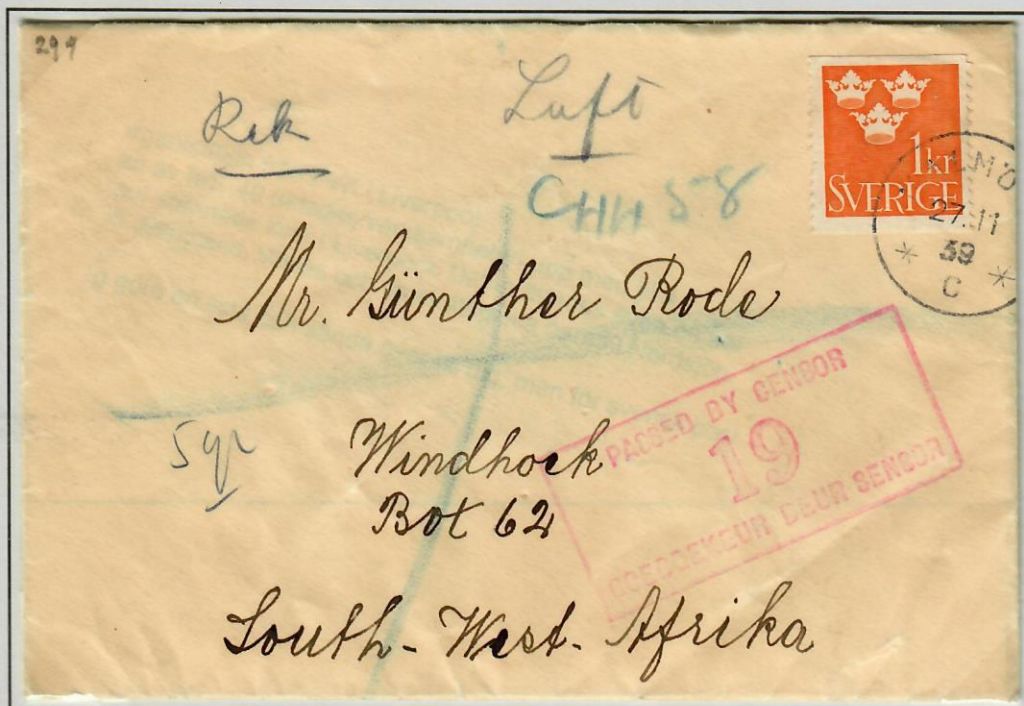 299
Rek
Luft
1 kr
SVERIGE
27.11
39
C
CHH 58
Mr. Günther Rode
PASSED BY CENSOR
19
GOEDGEKEUR DEUR SENSOR
5 gr
Windhoek
Bot 62
South-West-Afrika